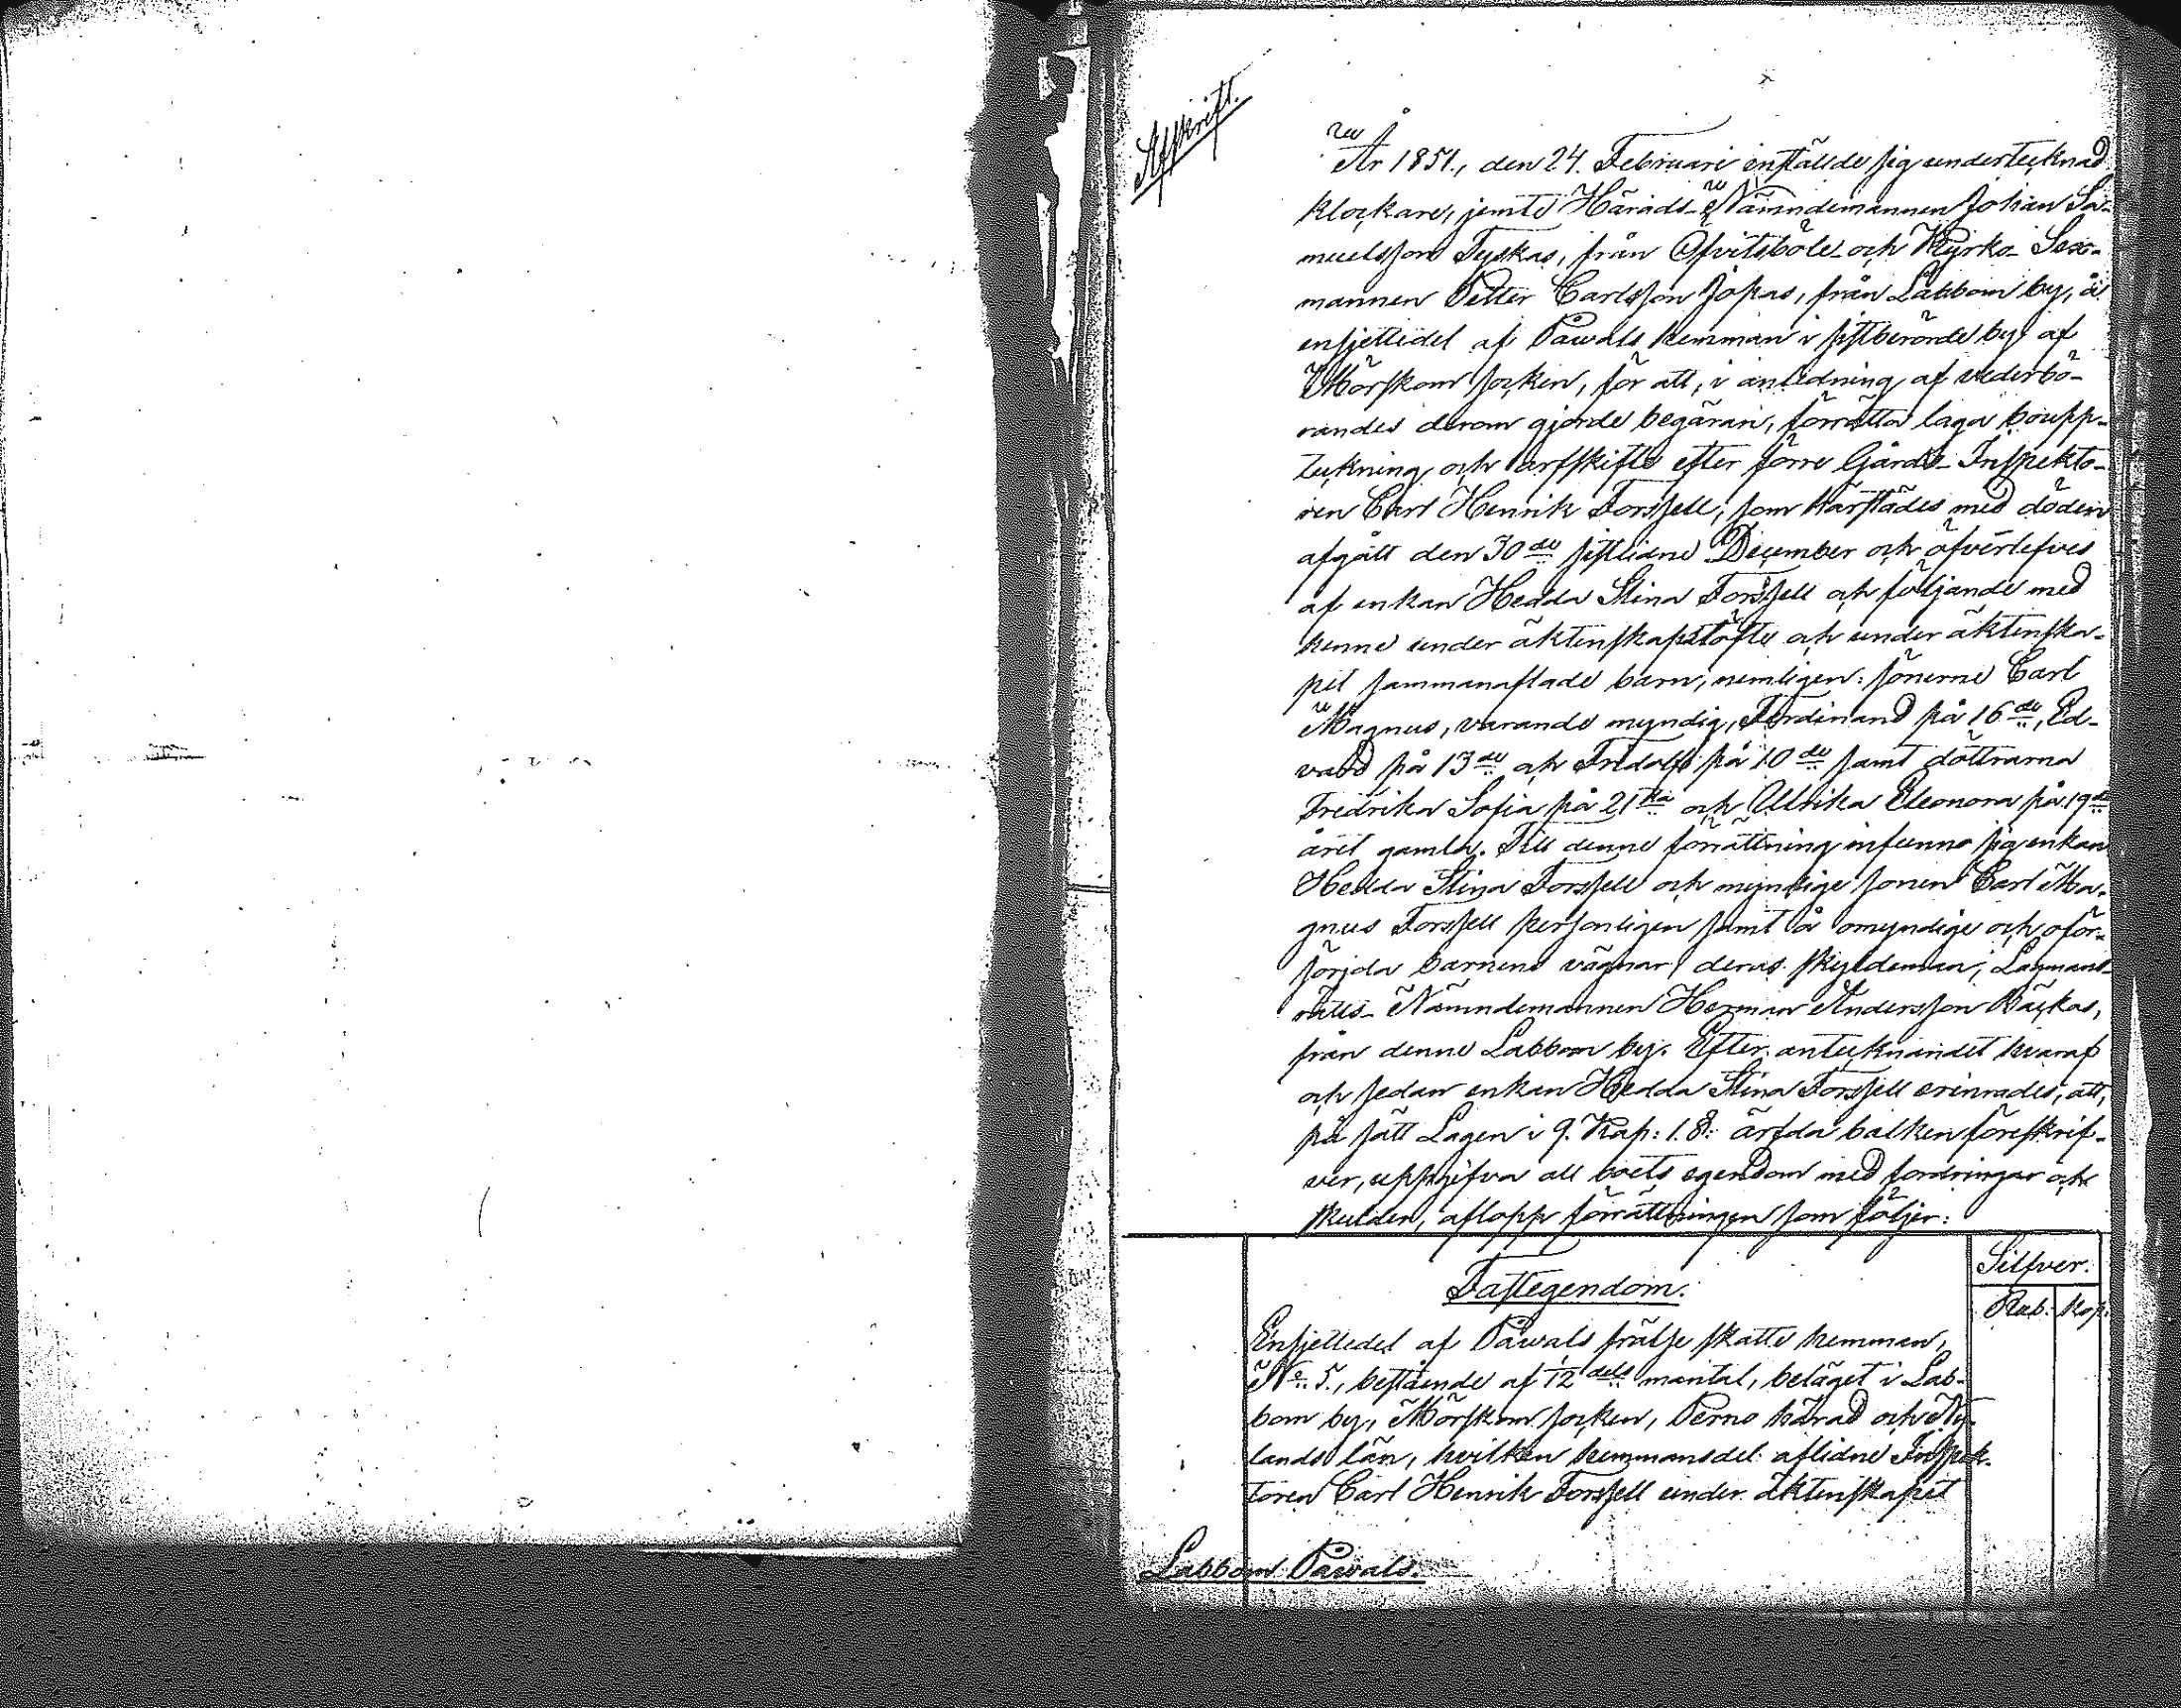 Afskrift.
År 1851., den 24. Februari instälde sig undertecknad
klockare, jemte Härads-Nämndemannen Johan Sa-
muelsson Tyskas, från Öfvitsböle och Kyrko-Sex-
mannen Petter Carlsson Jopas, från Labbom by, å
ensjettedel af Påwals hemman i sistberörde by af
Mörskom socken, för att, i anledning af vederbö-
randes derom gjorde begäran, förrätta laga boupp-
teckning och arfskifte efter förre Gårds-Inspekto-
ren Carl Henrik Forssell, som härstädes med döden
afgått den 30de sistlidne December och öfverlefves
af enkan Hedda Stina Forssell och följande med
henne under äktenskapslöfte och under äktenska-
pet sammanaflade barn, nemligen: sönerne Carl
Magnus, varande myndig, Ferdinand på 16de, Ed-
vard på 13de och Fridolf på 10de samt döttrarna
Fredrika Sofia på 21sta och Ulrika Eleonora på 19de
året gamla. Till denne förrättning infunno sig enkan
Hedda Stina Forssell och myndige sonen Carl Ma-
gnus Forssell personligen samt å omyndige och oför-
sörjda barnens vägnar, deras skyldeman, Lagmans-
rätts-Nämndemannen Herman Andersson Bäckas,
från denne Labbom by. Efter antecknandet hvaraf
och sedan enkan Hedda Stina Forssell erinrades, att,
på sätt Lagen i 9. Kap: 1. §: ärfda balken föreskrif-
ver, uppgifva all boets egendom med fordringar och
skulder, aflopp förrättningen som följer:
Silfver.
Fastegendom.
Rub: Kop:
Ensjettedel af Påwals frälse skatte hemman,
No 5., bestående af 1/12 dels mantal, beläget i Lab-
bom by, Mörskom socken, Perno härad och Ny-
lands län, hvilken hemmansdel aflidne Inspek-
toren Carl Henrik Forssell under äktenskapet
Labbom Påwals.